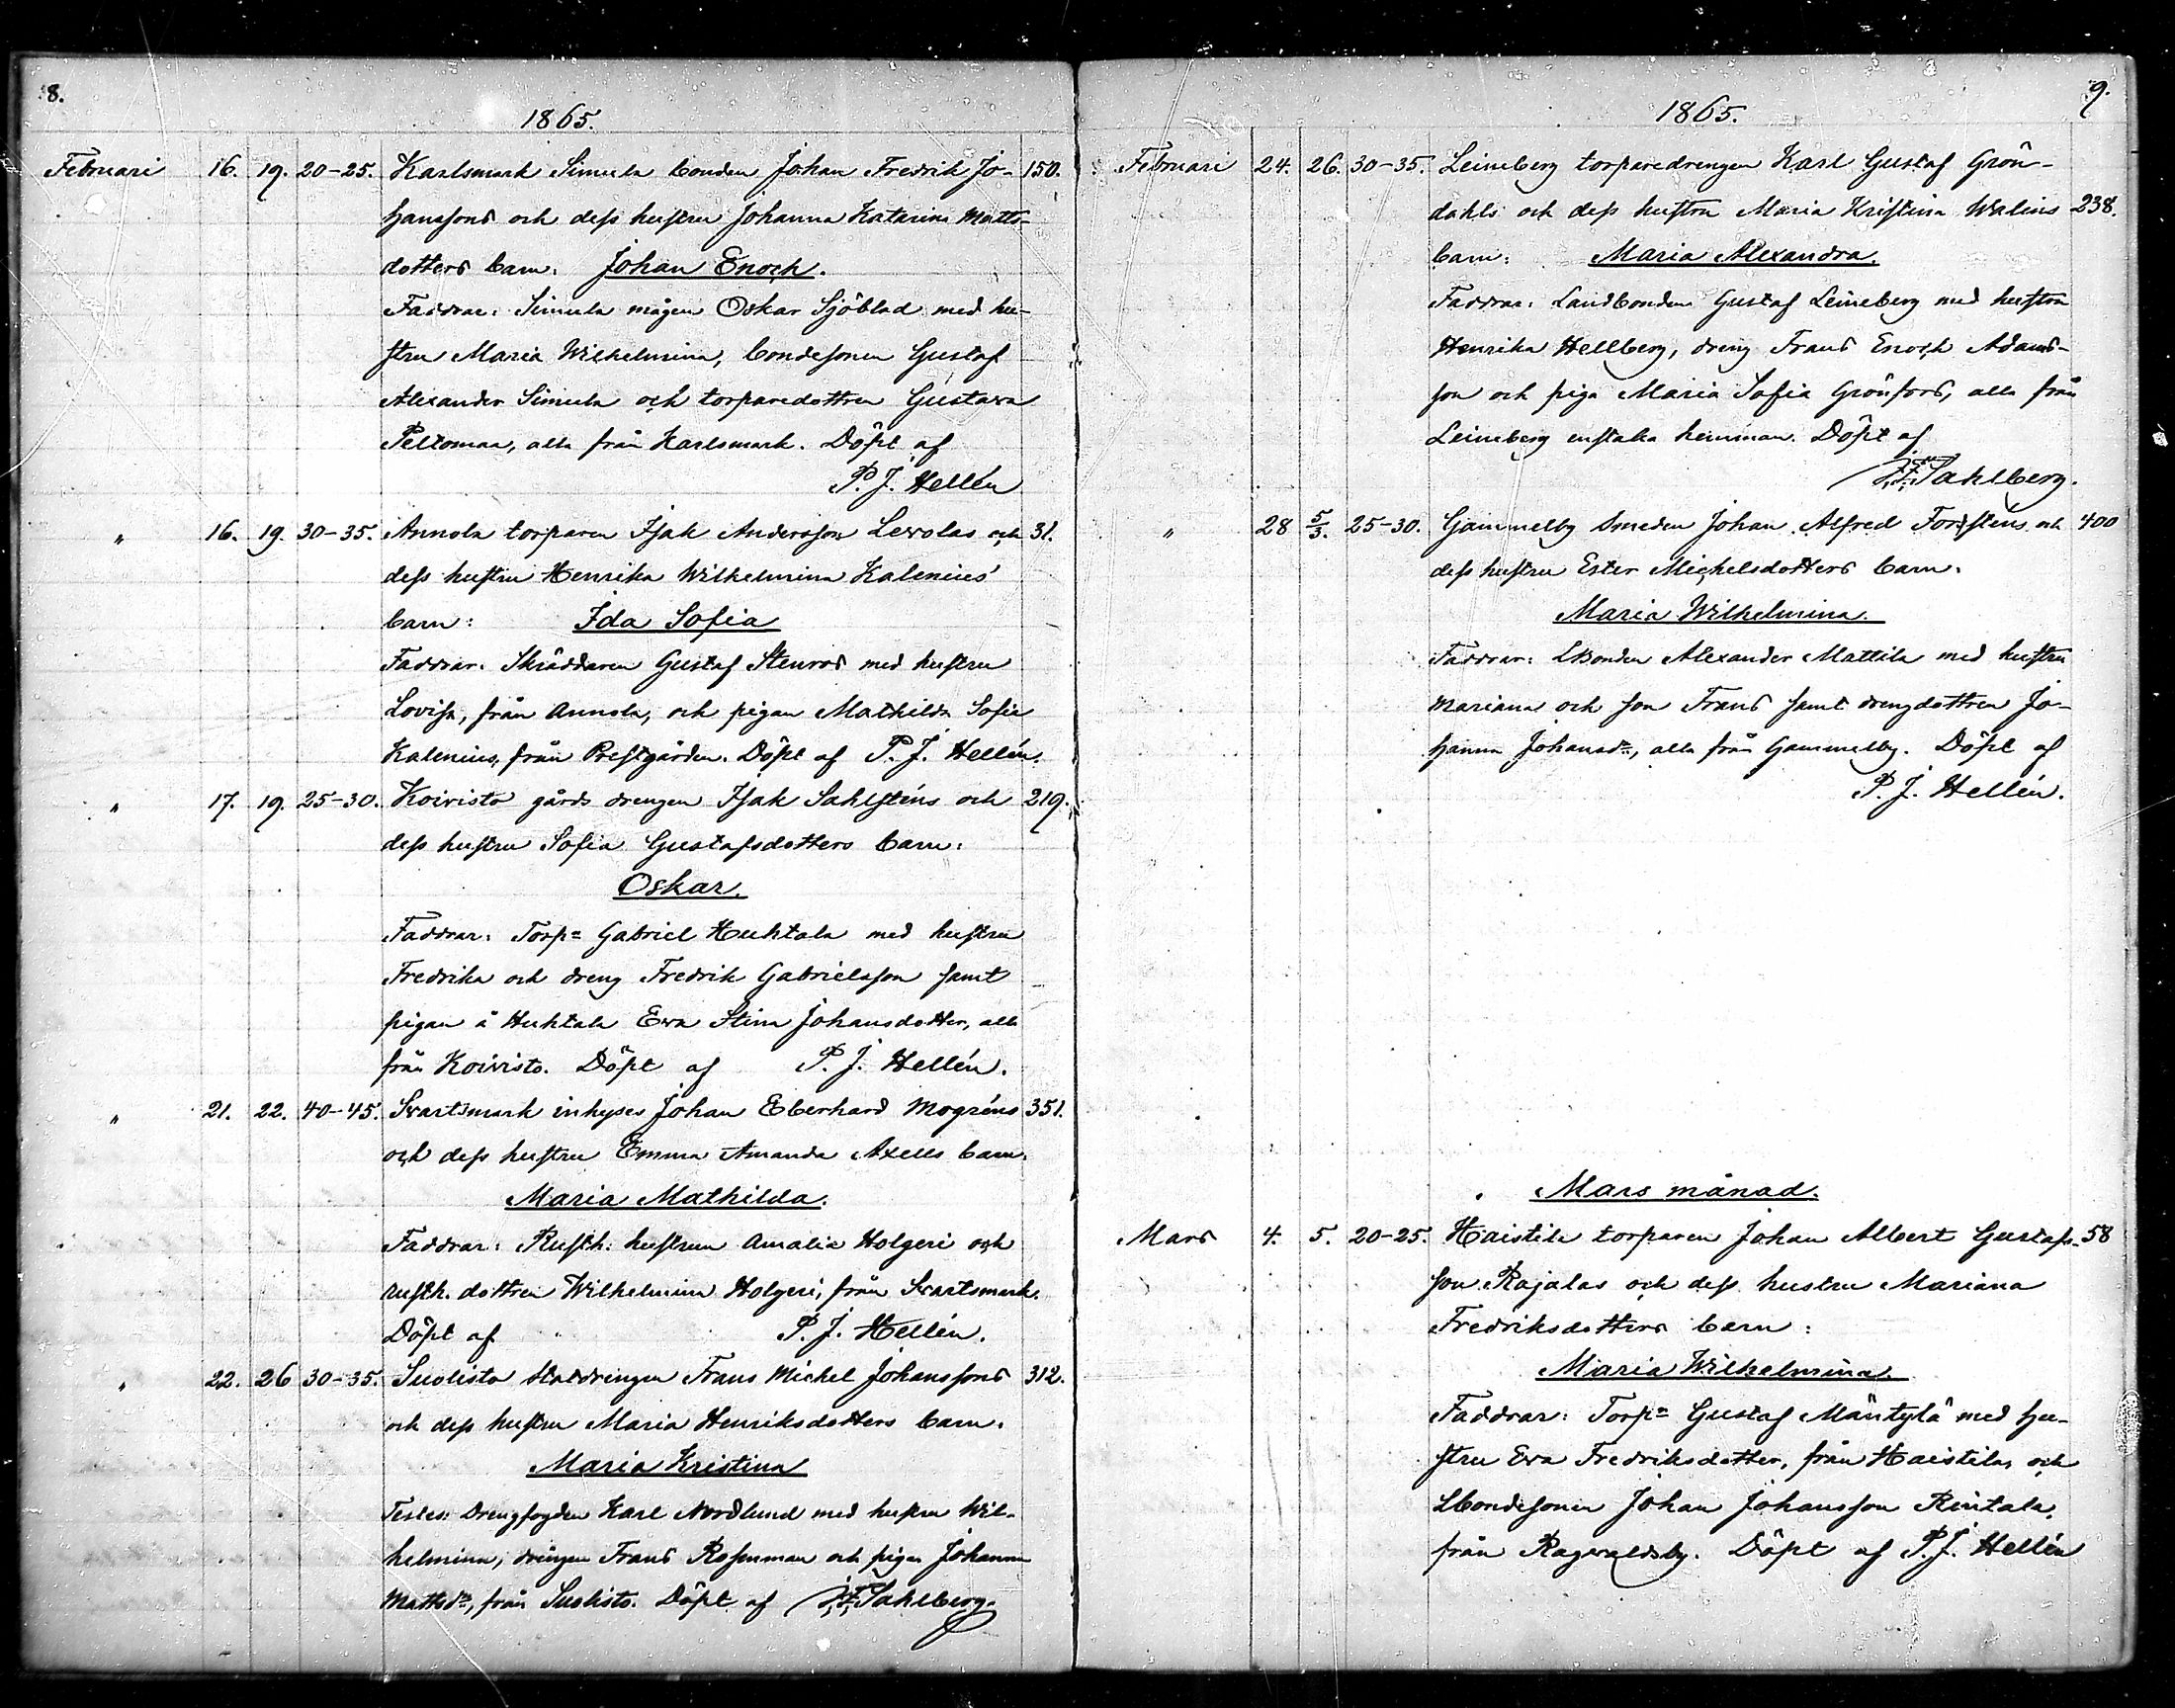 8.
1865.
Februari 16. 19. 20-25. Karlsmark Simula bonden Johan Fredrik Jo- 150.
hanssons och dess hustru Johanna Katarina Matts-
dotters barn: Johan Enoch.
Faddrar: Simula mågen Oskar Sjöblad med hu-
stru Maria Wilhelmina, bondesonen Gustaf
Alexander Simula och torparedottren Gustava
Peltomaa, alla från Karlsmark. Döpt af
P. J. Hellén
" 16. 19. 30-35. Annola torparen Isak Andersson Levolas och 31.
dess hustru Henrika Wilhelmina Kalenius'
barn: Ida Sofia
Faddrar: Skräddaren Gustaf Stenros med hustru
Lovisa, från Annola, och pigan Mathilda Sofia
Kalenius, från Prestgården. Döpt af P. J. Hellén.
" 17. 19. 25-30. Koivisto gårds drengen Isak Sahlsténs och 219.
dess hustru Sofia Gustafsdotters barn:
Oskar.
Faddrar: Torp= Gabriel Huhtala med hustru
Fredrika och dreng Fredrik Gabrielsson samt
pigan å Huhtala Eva Stina Johansdotter, alla
från Koivisto. Döpt af P. J. Hellén.
" 21. 22. 40-45. Svartsmark inhyses Johan Eberhard Mogréns 351.
och dess hustru Emma Amanda Axells barn:
Maria Mathilda.
Faddrar: Rusth: hustrun Amalia Holgeri och
rusth. dottren Wilhelmina Holgeri, från Svartsmark.
Döpt af P. J. Hellén.
" 22. 26 30-35. Suolisto statdrengen Frans Michel Johanssons 312.
och dess hustru Maria Henriksdotters barn:
Maria Kristina
Testes: Drengfogden Karl Nordlund med hustru Wil-
helmina, drängen Frans Rosenman och pigan Johanna
Mattsd:r, från Suolisto. Döpt af Sahlberg.
9.
1865.
Februari 24. 26. 30-35. Leineberg torparedrengen Karl Gustaf Grön-
dahls och dess hustru Maria Kristina Walins 238.
barn: Maria Alexandra.
Faddrar: Landbonden Gustaf Leineberg med hustru
Henrika Hellberg, dreng Frans Enoch Adams-
son och piga Maria Sofia Grönfors, alla från
Leineberg enstaka hemman. Döpt af
Sahlberg.
" 28 5/3. 25-30. Gammelby smeden Johan Alfred Forssténs och 400
dess hustru Ester Michelsdotters barn:
Maria Wilhelmina.
Faddrar: LBonden Alexander Mattila med hustru
Mariana och son Frans samt drengdottren Jo-
hanna Johansd:r, alla från Gammelby. Döpt af
P. J. Hellén.
Mars månad.
Mars 4. 5. 20-25. Haistila torparen Johan Albert Gustafs- 58
son Rajalas och dess hustru Mariana
Fredriksdotters barn:
Maria Wilhelmina.
Faddrar: Torp= Gustaf Mäntylä med hu-
stru Eva Fredriksdotter, från Haistila, och
Lbondesonen Johan Johansson Rintala,
från Ragvaldsby. Döpt af P. J. Hellén